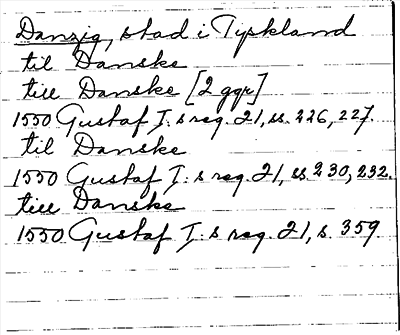 Danzig, stad i Tyskland
til Danske
till Danske [2 ggr]
1550 Gustaf I:s reg. 21, ss. 226, 227.
til Danske
1550 Gustaf I:s reg. 21, ss. 230, 232.
till Danske
1550 Gustaf I:s reg. 21, s. 359.